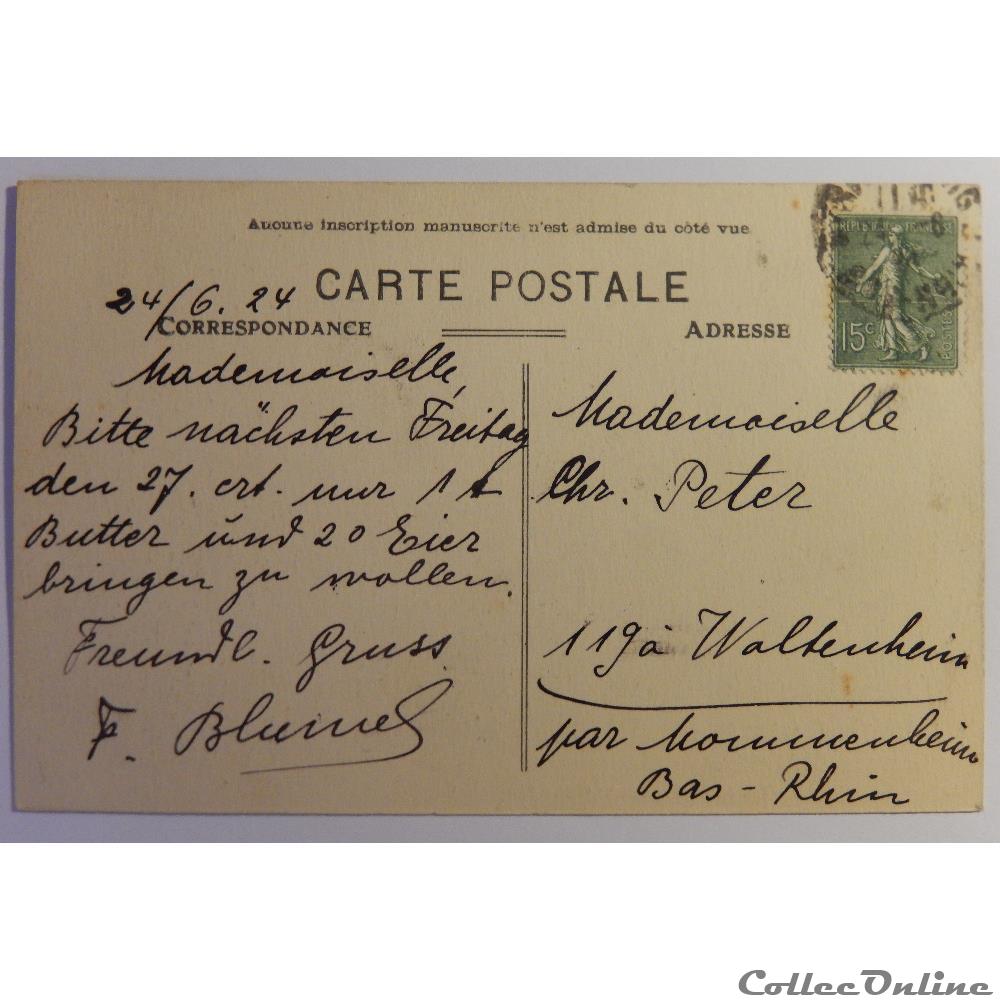 Aucune inscription manuscrite n'est admise du côté vue
CARTE POSTALE
24/6. 24
CORRESPONDANCE
Mademoiselle,
Bitte nächsten Freitag
den 27. crt. nur 1 t
Butter und 20 Eier
bringen zu wollen.
Freundl. Gruss
F. Blumel
ADRESSE
RÉPUBLIQUE FRANÇAISE
15c
POSTES
Mademoiselle
Chr. Peter
119 à Waltenheim
par Mommenheim
Bas - Rhin
CollecOnline